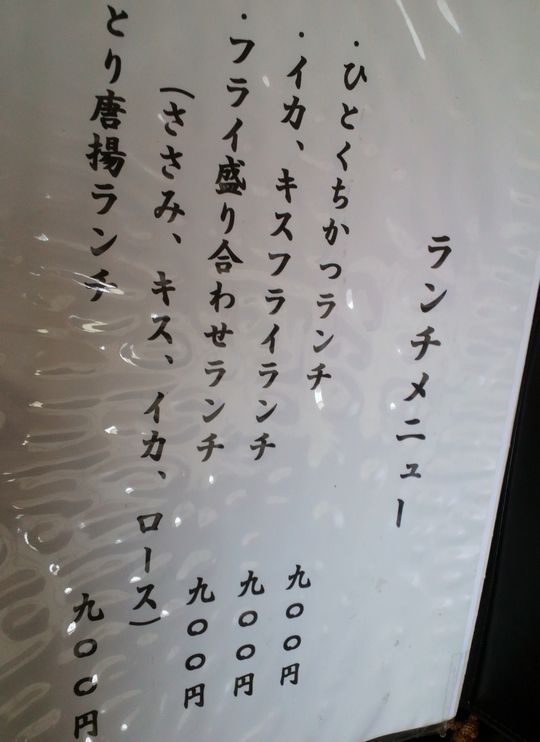 ランチメニュー
・ひとくちかつランチ 九〇〇円
・イカ、キスフライランチ 九〇〇円
・フライ盛り合わせランチ 九〇〇円
(ささみ、キス、イカ、ロース)
とり唐揚ランチ 九〇〇円